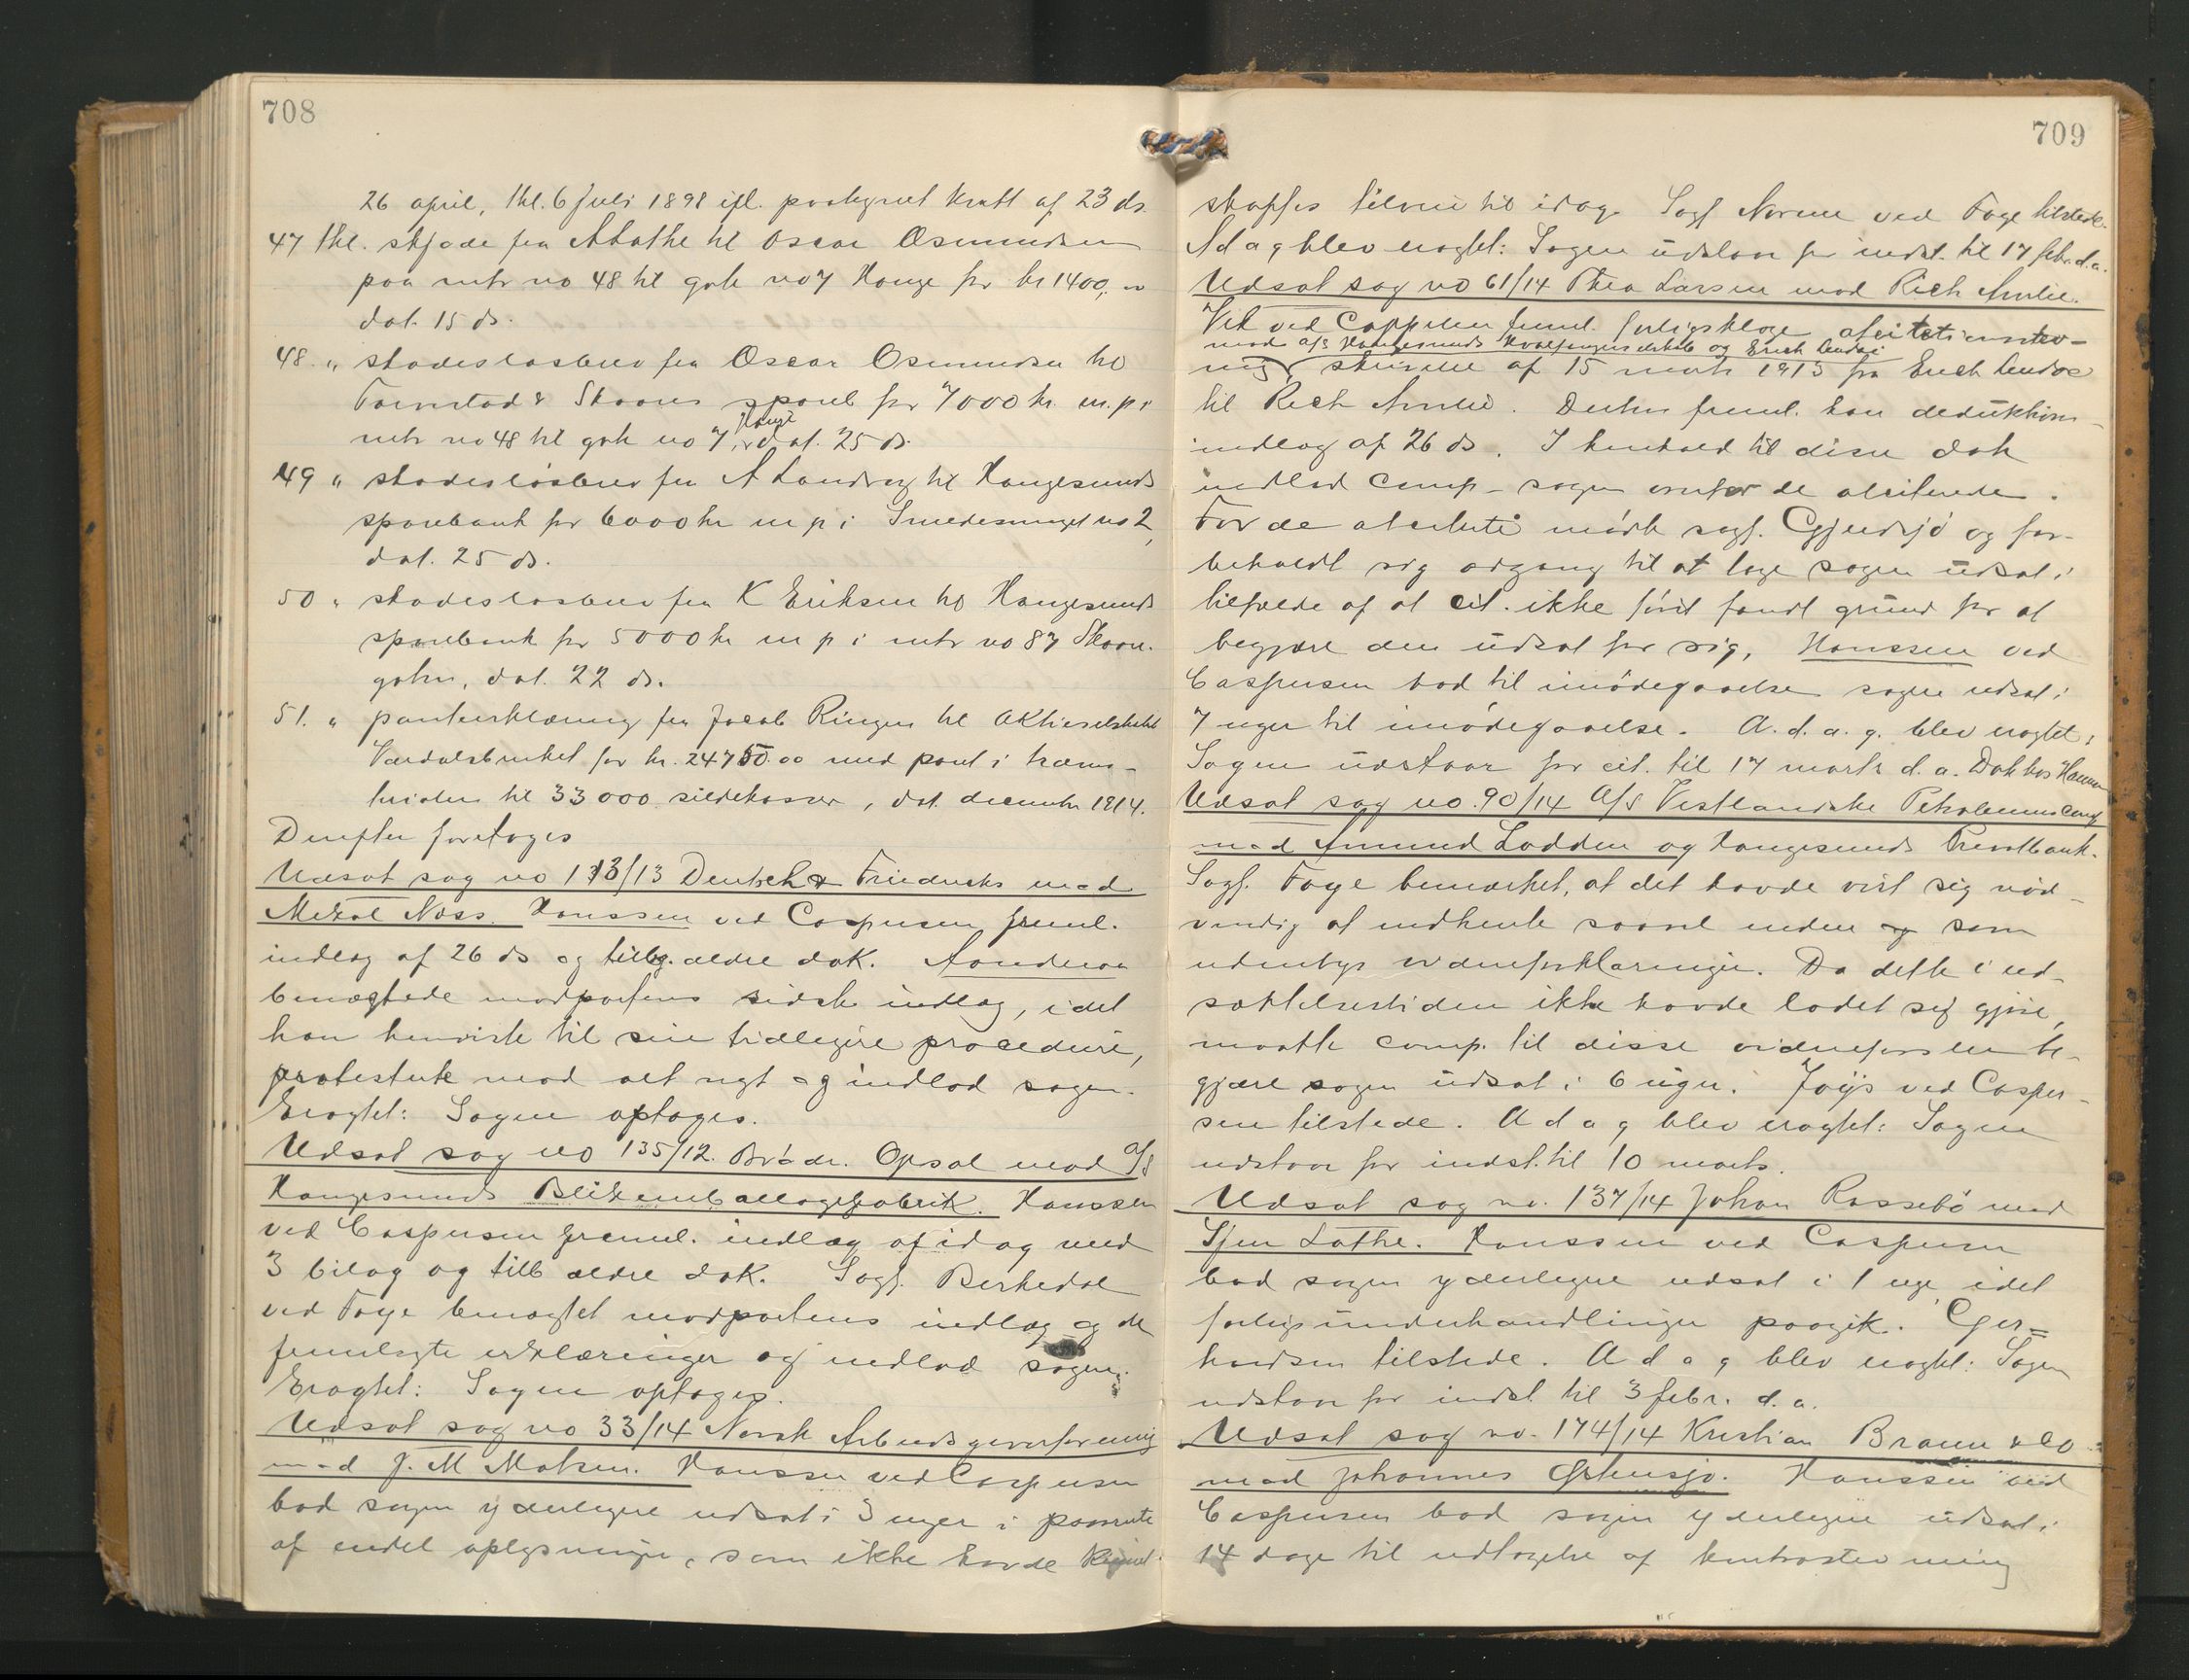 708
26 april, thl. 6 Juli 1898 ifl. paategnet kvitt af 23 ds.
47 thl. skjøde fra A Løthe til Oscar Osmundsen
paa mtr no 48 til gade no 7 Hauge for kr 1400,
dat. 15 ds.
48. " skadesløsbrev fra Oscar Osmundsen til
& Skaares spareb for 7000 kr. m. p i
mtr no 48 til gade no 7, Hauge dat. 25 ds.
49 " skadesløsbrev fra A Landvog til Haugesunds
sparebank for 6000 kr m p i Smedesmuget no 2,
dat. 25 ds.
50 " skadesløsbrev fra K Eriksen til Haugesunds
sparebank for 5000 kr m p i mtr no 87 Skaare-
gaten, dat. 22 ds.
51. " panteerklæring fra Jacob Ringen til Aktieselskabet
Værdalsbruket for kr. 24750.00 med pant i
til 33000 sildekasser, dat. december 1914.
Derefter foretoges
Udsat sag no 113/13 Deutsch & Friedrichs mod
Mikal Næss. Hanssen ved Caspersen freml.
indlæg af 26 ds og tilbg. ældre dok. Aanderaa
benægtede modpartens sidste indlæg, idet
han henviste til sin tidligere procedure,
protesterte mod alt nyt og indlod sagen.
Eragtet: Sagen optages.
Udsat sag no 135/12. Brødr. Opsal mod A/S
Haugesunds Blikemballagefabrik. Hanssen
ved Caspersen freml. indlæg af idag med
3 bilag og tilb ældre dok. Sagf. Berkedal
ved Faye benægtet modpartens indlæg og de
fremlagte erklæringer og indlod sagen.
Eragtet: Sagen optages.
Udsat sag no 33/14 Norsk Arbeidsgiverforening
mod J. M Matsen. Hanssen ved Caspersen
bad sagen yderligere udsat i 3 uger i paavente
af endel oplysninger, som ikke havde kunnet
709
skaffes tilveie til idag. Sagf Norem ved Faye tilstede.
A d a g blev eragtet: Sagen udstaar for indst. til 17 febr. d.a.
Udsat sag no 61/14 Thea Larsen mod Rich Amlie.
Vit ved Cappelen freml. forligsklage, afcitationsstev-
mod A/S Haugesunds Hvalfangerselskab og Erich Lindøe
ning, skrivelse af 15 marts 1913 fra Erich Lindøe
til Rich Amlie. Derhos freml. han deduktions-
indlæg af 26 ds. I henhold til disse dok
indlod comp. sagen overfor de afciterede.
For de afciterte mødte sagf. Gjendsjø og for-
beholdt sig adgang til at tage sagen udsat i
tilfælde af at cit. ikke først fandt grund for at
begjære den udsat for sig. Hanssen ved
Caspersen bad til imødegaaelse sagen udsat i
7 uger til imødegaaelse. A. d. a. g. blev eragtet:
Sagen udstaar for cit. til 17 marts d. a. Dok hos Hanssen
Udsat sag no. 90/14 A/S Vestlandske Petroleumscomp
mod Amund Lodden og Haugesunds Privatbank.
Sagf. Faye bemærket, at det havde vist sig nød-
vendig at indhente saavel inden og som
udenbys vidneforklaringer. Da dette i ud-
sættelsestiden ikke havde ladet sig gjøre,
maatte comp. til disse vidneførsler be-
gjære sagen udsat i 6 uger. Joys ved Casper-
sen tilstede. A d a g blev eragtet: Sagen
udstaar for indst. til 10 marts.
Udsat sag no. 137/14 Johan Rossebø mod
Sjur Lothe. Hanssen ved Caspersen
bad sagen yderligere udsat i 1 uge, idet
forligsunderhandlinger paagik. Ger-
hardsen tilstede. A d a g blev eragtet: Sagen
udstaar for indst til 3 febr. d. a.
Udsat sag no. 174/14 Kristian Braun & Co
mod Johannes Østensjø. Hanssen ved
Caspersen bad sagen yderligere udsat i
14 dage til udtagelse af kontrastevning